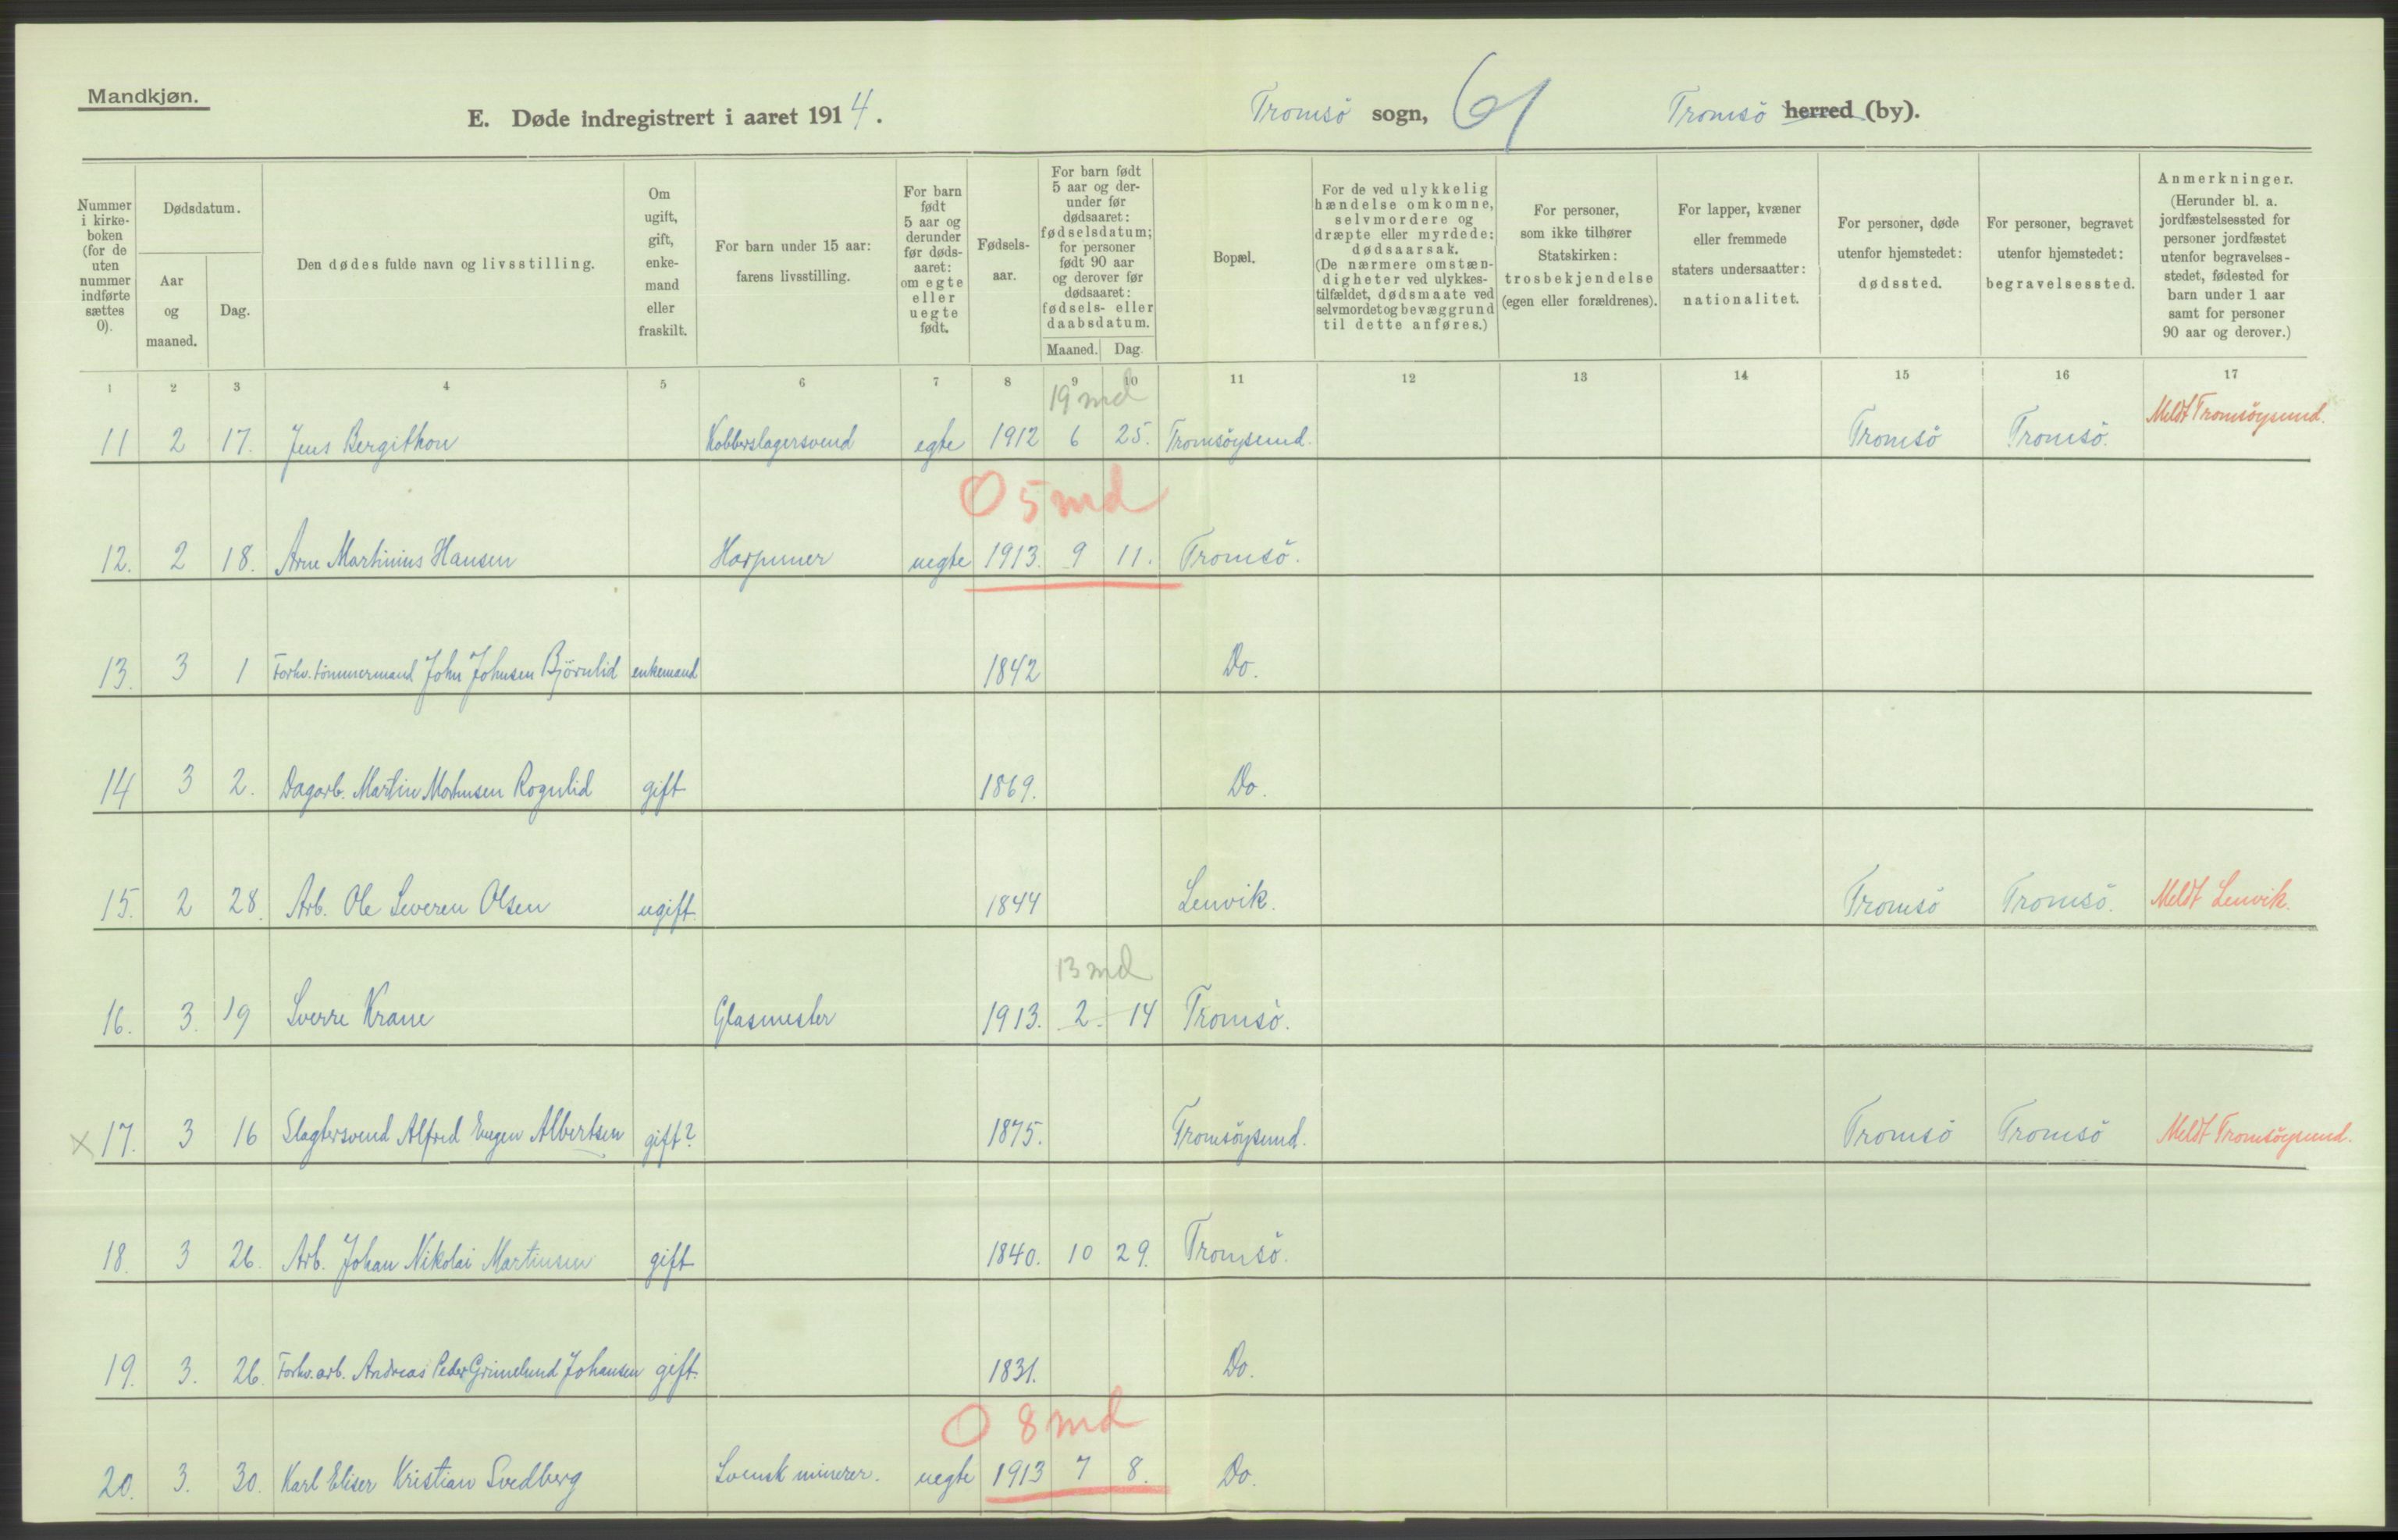 Mandkjøn.
E. Døde indregistrert i aaret 1914. Tromsö sogn, 61 Tromsö herred (by).
Nummer i kirke-boken (for de uten nummer indførte sættes 0).
Dødsdatum.
Aar og maaned.
Dag.
Den dødes fulde navn og livsstilling.
Om ugift, gift, enke-mand eller fraskilt.
For barn under 15 aar: farens livsstilling.
For barn født 5 aar og derunder før døds-aaret: om egte eller uegte født.
Fødsels-aar.
For barn født 5 aar og der-under før dødsaaret: fødselsdatum; for personer født 90 aar og derover før dødsaaret: fødsels- eller daabsdatum.
Maaned. Dag.
Bopæl.
For de ved ulykkelig hændelse omkomne, selvmordere og dræpte eller myrdede: dødsaarsak. (De nærmere omstæn-digheter ved ulykkes-tilfældet, dødsmaate ved selvmordet og bevæggrund til dette anføres.)
For personer, som ikke tilhører Statskirken: trosbekjendelse (egen eller forældrenes).
For lapper, kvæner eller fremmede staters undersaatter: nationalitet.
For personer, døde utenfor hjemstedet: dødssted.
For personer, begravet utenfor hjemstedet: begravelsessted.
Anmerkninger. (Herunder bl. a. jordfæstelsessted for personer jordfæstet utenfor begravelses-stedet, fødested for barn under 1 aar samt for personer 90 aar og derover.)
1 2 3 4 5 6 7 8 9 10 11 12 13 14 15 16 17
19 md
11 2 17. Jens Bergithon Kobberslagersvend egte 1912 6 25. Tromsöysund. Tromsö Tromsö. Meldt Tromsöysund.
O 5 md
12. 2 18. Arne Martinius Hansen Harpuner uegte 1913. 9 11. Tromsö.
13. 3 1 Forhv. tömmermand John Johnsen Björnlid enkemand 1842 Do.
14 3 2. Dagarb. Martin Mortensen Rognlid gift 1869. Do.
15. 2 28. Arb. Ole Severen Olsen ugift 1844 Lenvik. Tromsö Tromsö. Meldt Lenvik.
13 md
16. 3. 19 Sverre Krane Glasmester 1913. 2. 14 Tromsö.
x 17. 3 16 Slagtersvend Alfred Eugen Albertsen gift? 1875. Tromsöysund. Tromsö Tromsö Meldt Tromsöysund.
18. 3 26. Arb. Johan Nikolai Martinsen gift 1840. 10 29. Tromsö.
19. 3. 26. Forhv. arb. Andreas Peder Grimelund Johansen gift 1831. Do.
O 8 md
20. 3. 30. Karl Eliser Kristian Svedberg Svensk minerer. uegte 1913 7 8. Do.